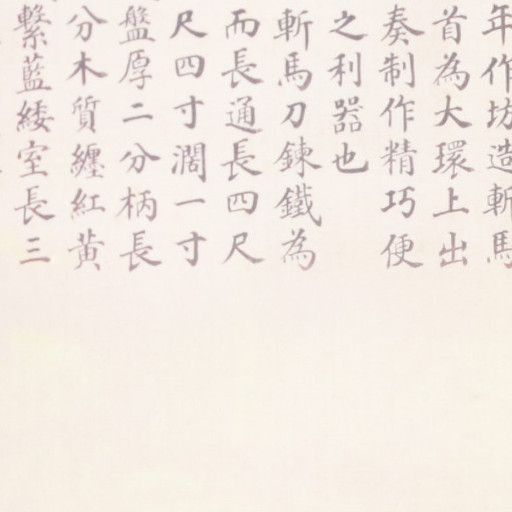 年作坊造斬馬
首為大環上出
奏制作精巧便
之利器也
斬馬刀鍊鐵為
而長通長四尺
尺四寸濶一寸
盤厚二分柄長
分木質纏紅黃
繫藍緌室長三